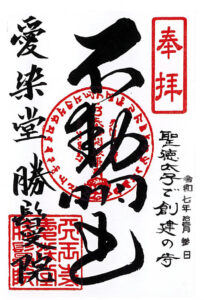 奉拝
聖徳太子ご創建の寺
令和七年
日
不動明王
愛染堂 勝鬘院